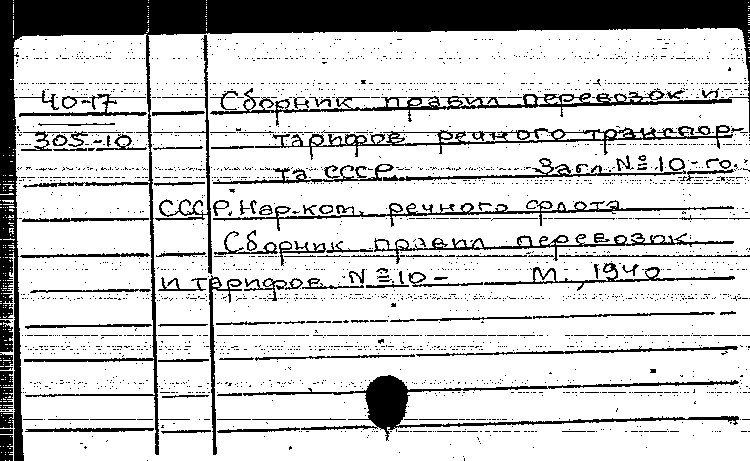 40-17 Сборник правил перевозок и
305-10 тарифов речного транспор-
та СССР. Загл. № 10-го:
СССР. Нар. ком. речного флота
Сборник правил перевозок
и тарифов. № 10- М., 1940